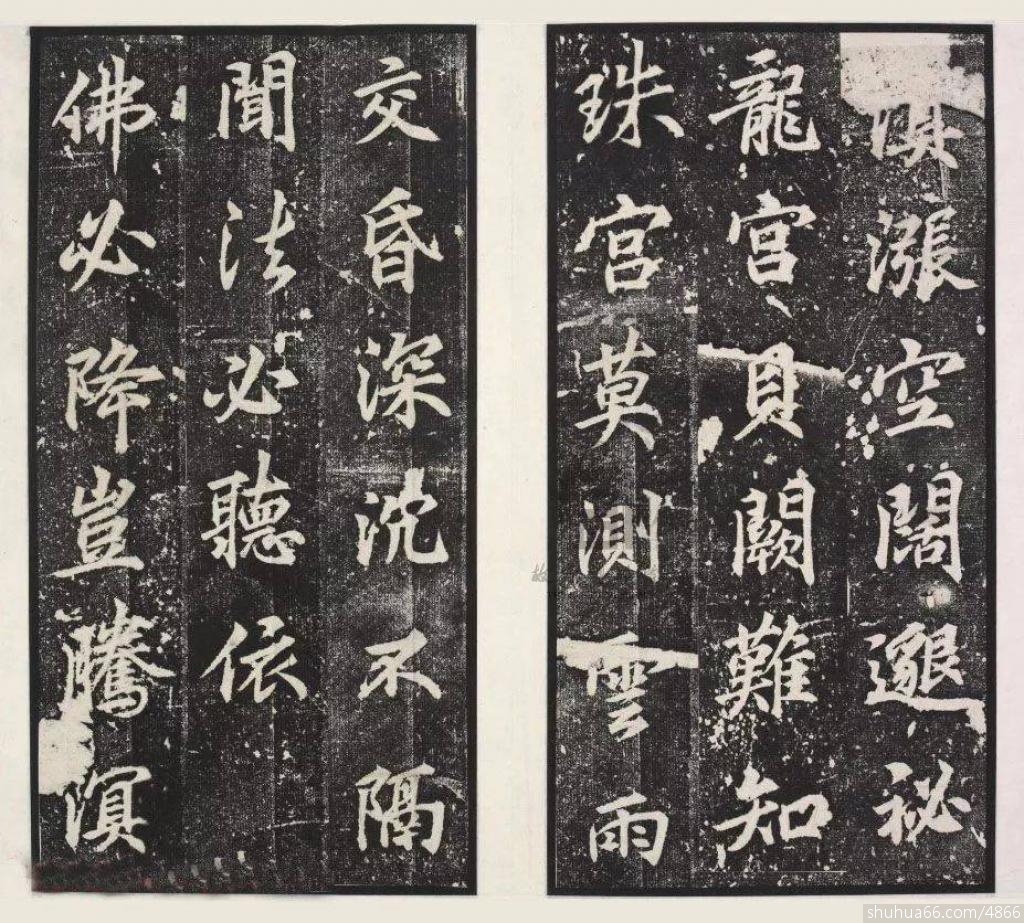 漲空闊邈祕
龍宮貝闕難知
珠宮莫測雲雨
交昏深沈不隔
聞法必聽依
佛必降豈騰溟
shuhua66.com/4866